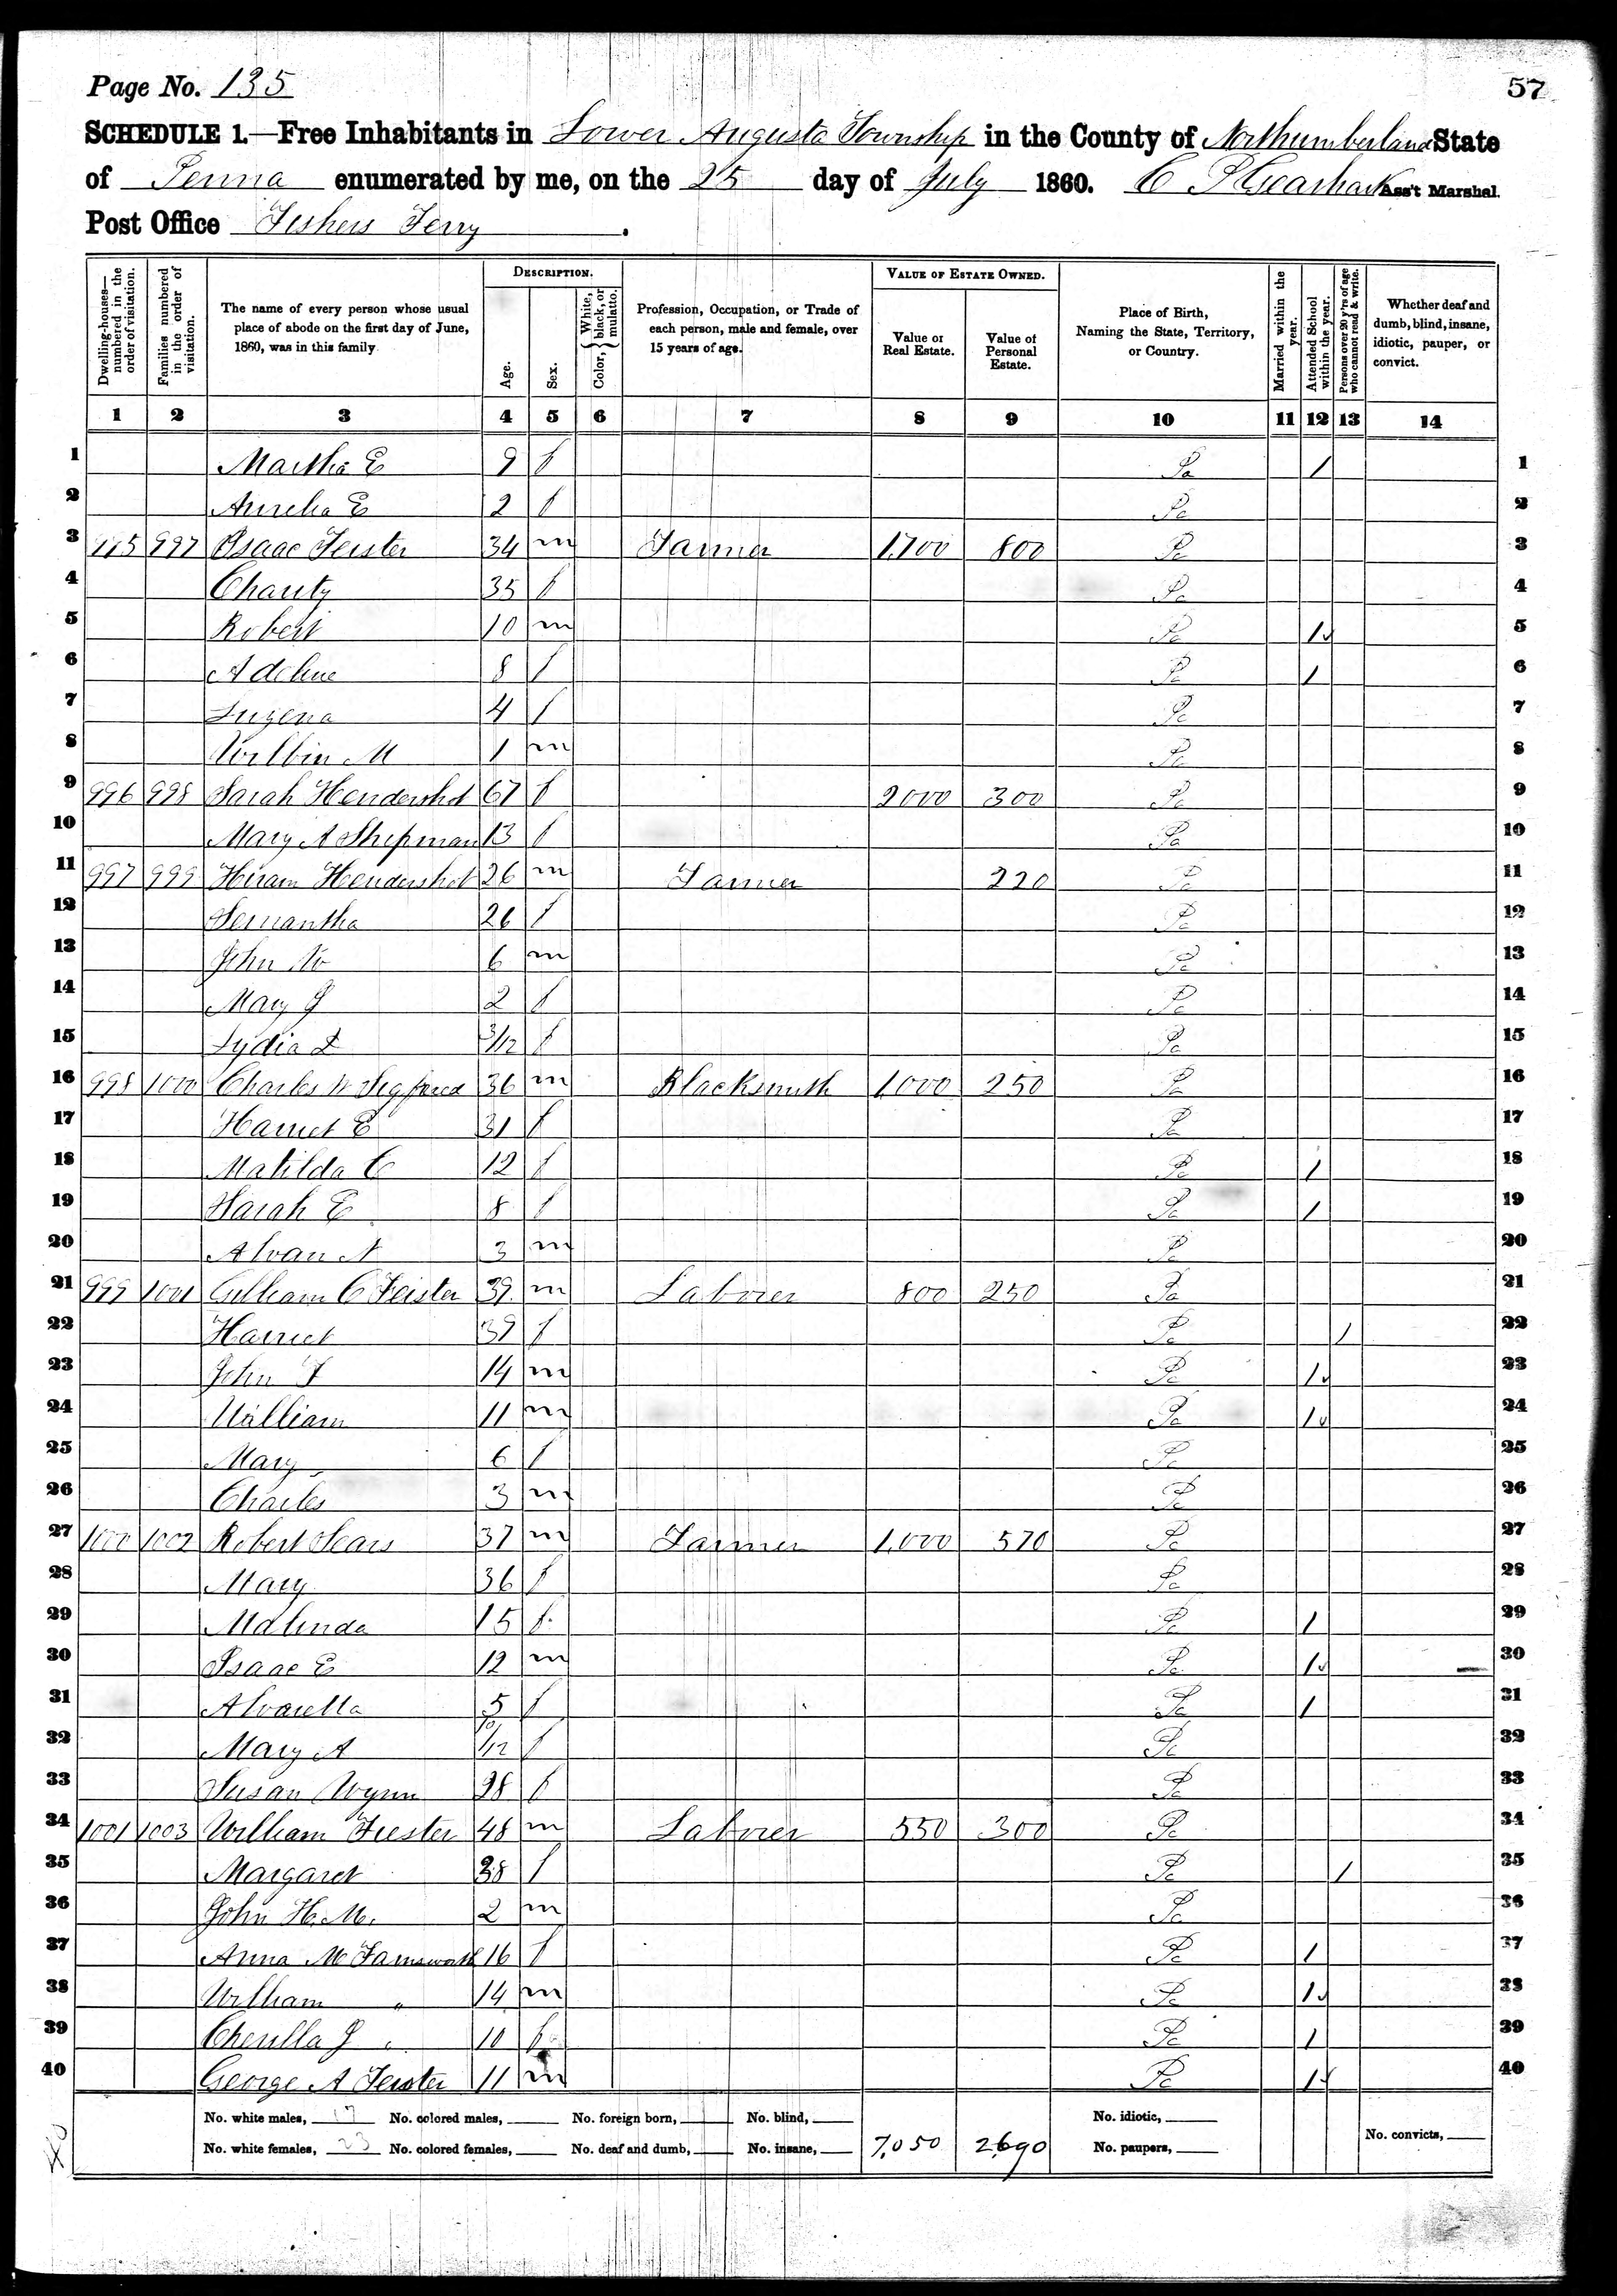 Page No. 135
57
SCHEDULE 1.—Free Inhabitants in Lower Augusta Township in the County of Northumberland State
of Penna enumerated by me, on the 25 day of July 1860. C P Gearhart Ass't Marshal.
Post Office Fishers Ferry.
Dwelling-houses—numbered in the order of visitation.
Families numbered in the order of visitation.
The name of every person whose usual place of abode on the first day of June, 1860, was in this family
DESCRIPTION.
Age.
Sex.
Color, White, black, or mulatto.
Profession, Occupation, or Trade of each person, male and female, over 15 years of age.
VALUE OF ESTATE OWNED.
Value of Real Estate.
Value of Personal Estate.
Place of Birth, Naming the State, Territory, or Country.
Married within the year.
Attended School within the year.
Persons over 20 y'rs of age who cannot read & write.
Whether deaf and dumb, blind, insane, idiotic, pauper, or convict.
1 2 3 4 5 6 7 8 9 10 11 12 13 14
1 Martha E 9 f Pa / 1
2 Aurelia E 2 f Pa 2
3 995 997 Isaac Feister 34 m Farmer 1,700 800 Pa 3
4 Charity 35 f Pa 4
5 Robert 10 m Pa / 5
6 Adeline 8 f Pa / 6
7 Luzena 4 f Pa 7
8 Wilbin M 1 m Pa 8
9 996 998 Sarah Hendershot 67 f 2000 300 Pa 9
10 Mary A Shipman 13 f Pa 10
11 997 999 Hiram Hendershot 26 m Farmer 220 Pa 11
12 Semantha 26 f Pa 12
13 John W 6 m Pa 13
14 Mary J 2 f Pa 14
15 Lydia L 3/12 f Pa 15
16 998 1000 Charles W Sigfried 36 m Blacksmith 1,000 250 Pa 16
17 Harriet E 31 f Pa 17
18 Matilda C 12 f Pa / 18
19 Sarah E 8 f Pa / 19
20 Alvan N 3 m Pa 20
21 999 1001 Gilliam C Feister 39 m Laborer 800 250 Pa 21
22 Harriet 39 f Pa / 22
23 John F 14 m Pa / 23
24 William 11 m Pa / 24
25 Mary 6 f Pa 25
26 Charles 3 m Pa 26
27 1000 1002 Robert Sears 37 m Farmer 1,000 570 Pa 27
28 Mary 36 f Pa 28
29 Malinda 15 f Pa / 29
30 Isaac E 12 m Pa / 30
31 Alvaretta 5 f Pa / 31
32 Mary A 10/12 f Pa 32
33 Susan Wynn 28 f Pa 33
34 1001 1003 William Fiester 48 m Laborer 550 300 Pa 34
35 Margaret 38 f Pa / 35
36 John H. M. 2 m Pa 36
37 Anna M Farnsworth 16 f Pa / 37
38 William " 14 m Pa / 38
39 Cherilla J " 10 f Pa / 39
40 George A Feister 11 m Pa / 40
No. white males, 17 No. colored males, No. foreign born, No. blind, No. idiotic,
No. white females, 23 No. colored females, No. deaf and dumb, No. insane, 7,050 2690 No. paupers, No. convicts,